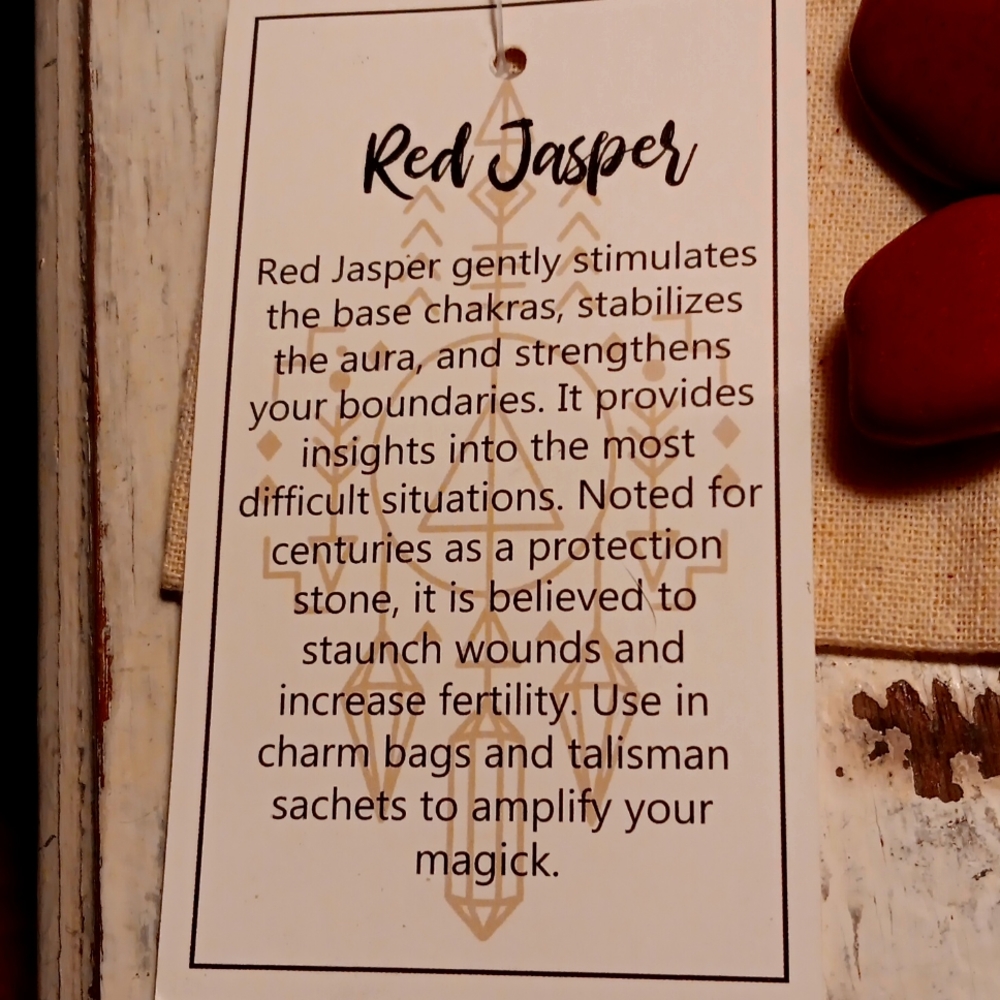 Red Jasper
Red Jasper gently stimulates
the base chakras, stabilizes
the aura, and strengthens
your boundaries. It provides
insights into the most
difficult situations. Noted for
centuries as a protection
stone, it is believed to
staunch wounds and
increase fertility. Use in
charm bags and talisman
sachets to amplify your
magick.